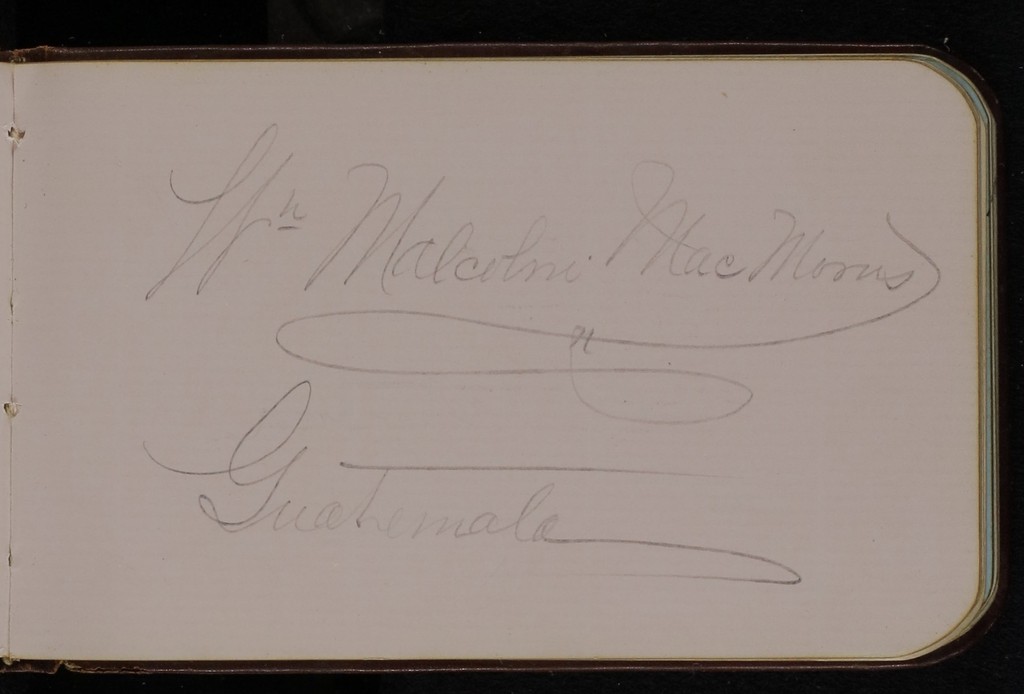 Wm Malcolm MacMorris
Guatemala